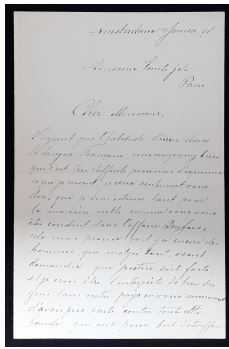 Amsterdam Janvier 98
Monsieur Emile Zola
Paris
Cher Monsieur,
N'ayant pas l'habitude d'écrire dans
la langue Française, vous comprenez bien
que c'est très difficile pour moi d'exprimer
ce que je ressent, je veux seulement vous
dire, que je vous admire haut pour
la manière noble comme vous vous
êtes conduit dans l'affaire Dreyfus,
cela nous prouve qu'il y a encore des
hommes, qui malgré tout, osent
demander que justice soit faite,
et je crois être l'interprète de bien des
gens dans notre pays en vous remerciant
d'avoir pris parti contre toute cette
bande qui ont pour but d'étouffer